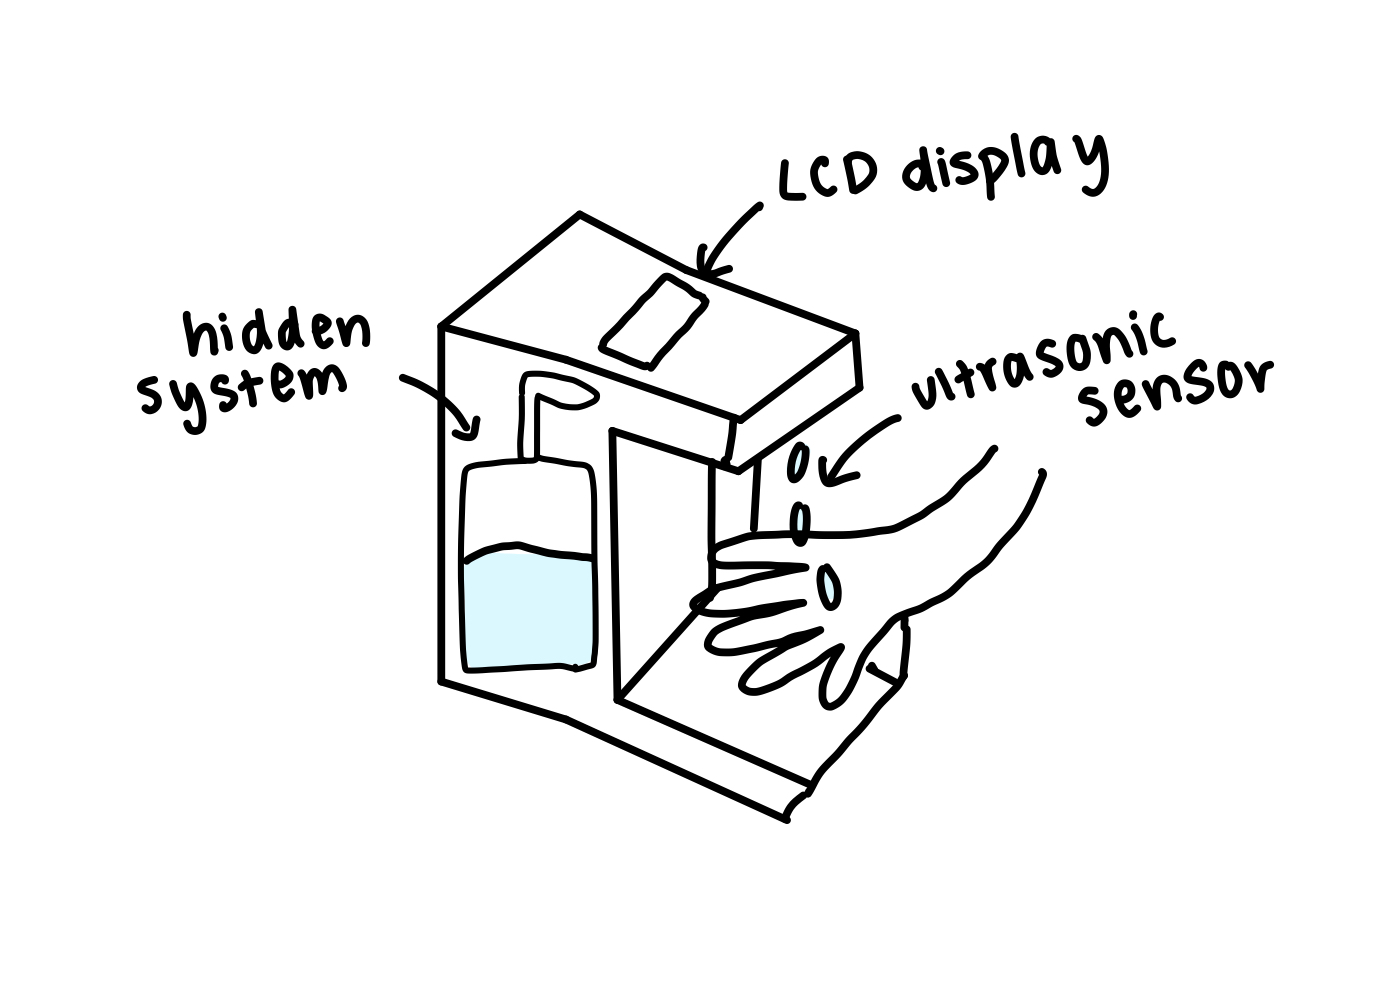 LCD display
hidden
system
ultrasonic
sensor